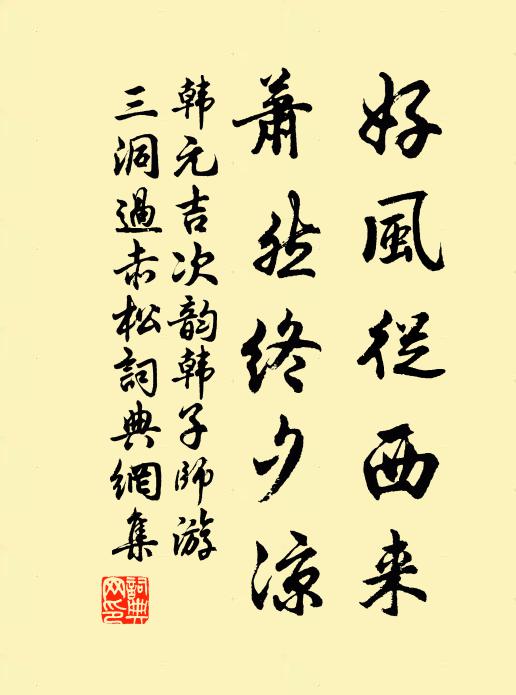 好風從西来
蕭然終夕涼
韩元吉次韵韩子师游
三洞過赤松詞典網集
詞典網印